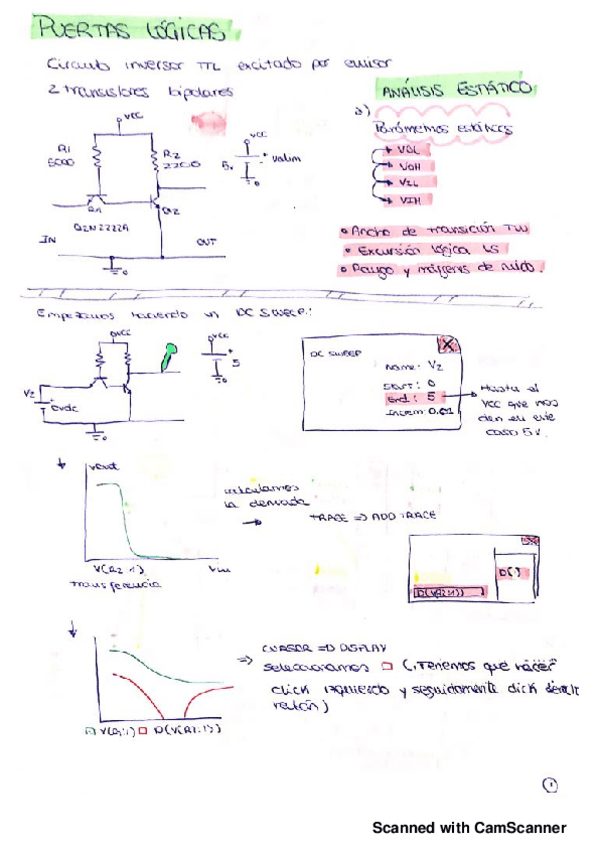 PUERTAS LÓGICAS
Circuito inversor TTL excitado por emisor
2 transistores bipolares
ANÁLISIS ESTÁTICO
a)
Parámetros estáticos
VOL
VOH
VIL
VIH
VCC
R1
R2
2200
VCC
5v
Valim
Q1
Q2
Q2N2222A
IN
OUT
• Ancho de transición TW
• Excursión lógica LS
• Rango y márgenes de ruido.
Empezamos haciendo un DC SWEEP:
VCC
VCC
5
V2
0Vdc
DC SWEEP
name: V2
Start: 0
End: 5
Increm: 0.01
Hasta el
VCC que nos
den en este
caso 5v.
Vout
V(R2:1)
Vin
Transferencia
calculamos
la derivada
TRACE => ADD TRACE
D( )
D(V(R2:1))
=> CURSOR => DISPLAY
seleccionamos □ (Tenemos que hacer
click izquierdo y seguidamente click
D(V(R2:1))
1
Scanned with CamScanner